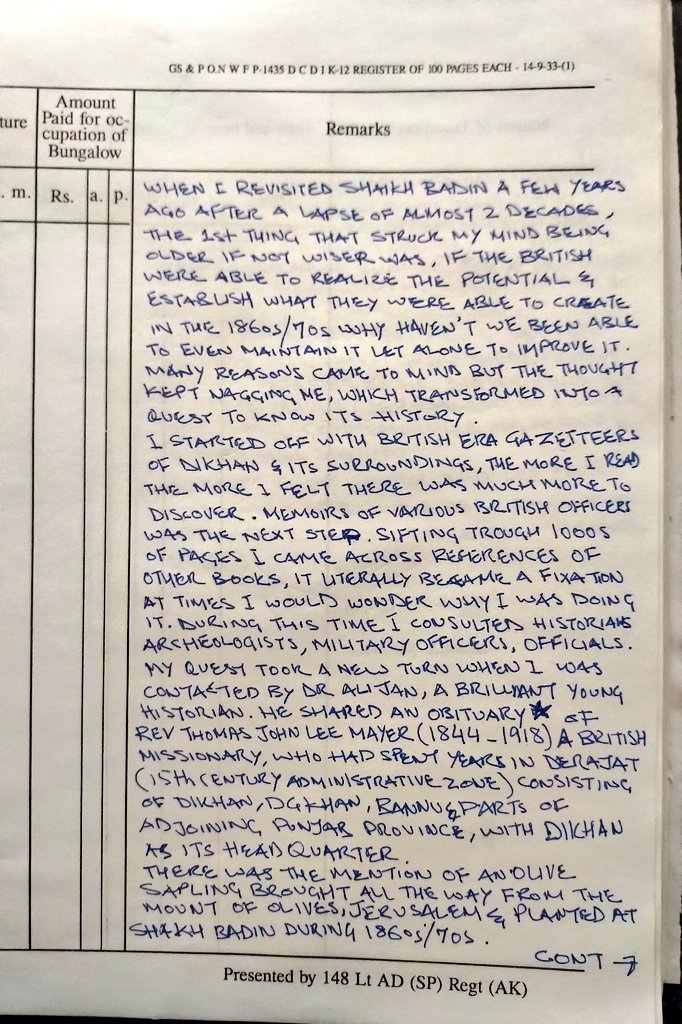 GS & P O.N W F P-1435 D C D I K-12 REGISTER OF 100 PAGES EACH - 14-9-33-(1)
ture
Amount
Paid for oc-
cupation of
Bungalow
Remarks
. m.
Rs.
a.
p.
WHEN I REVISITED SHAIKH BADIN A FEW YEARS
AGO AFTER A LAPSE OF ALMOST 2 DECADES,
THE 1st THING THAT STRUCK MY MIND BEING
OLDER IF NOT WISER WAS, IF THE BRITISH
WERE ABLE TO REALIZE THE POTENTIAL &
ESTABLISH WHAT THEY WERE ABLE TO CREATE
IN THE 1860s/70s WHY HAVEN'T WE BEEN ABLE
TO EVEN MAINTAIN IT LET ALONE TO IMPROVE IT.
MANY REASONS CAME TO MIND BUT THE THOUGHT
KEPT NAGGING ME, WHICH TRANSFORMED INTO A
QUEST TO KNOW ITS HISTORY.
I STARTED OFF WITH BRITISH ERA GAZETTEERS
OF DIKHAN & ITS SURROUNDINGS, THE MORE I READ
THE MORE I FELT THERE WAS MUCH MORE TO
DISCOVER. MEMOIRS OF VARIOUS BRITISH OFFICERS
WAS THE NEXT STEP. SIFTING TROUGH 1000S
OF PAGES I CAME ACROSS REFERENCES OF
OTHER BOOKS, IT LITERALLY BECAME A FIXATION
AT TIMES I WOULD WONDER WHY I WAS DOING
IT. DURING THIS TIME I CONSULTED HISTORIANS
ARCHEOLOGISTS, MILITARY OFFICERS, OFFICIALS.
MY QUEST TOOK A NEW TURN WHEN I WAS
CONTACTED BY DR ALI JAN, A BRILLIANT YOUNG
HISTORIAN. HE SHARED AN OBITUARY OF
REV THOMAS JOHN LEE MAYER (1844-1918) A BRITISH
MISSIONARY, WHO HAD SPENT YEARS IN DERAJAT
(15th CENTURY ADMINISTRATIVE ZONE) CONSISTING
OF DIKHAN, DGKHAN, BANNU & PARTS OF
ADJOINING PUNJAB PROVINCE, WITH DIKHAN
AS ITS HEADQUARTER.
THERE WAS THE MENTION OF AN OLIVE
SAPLING BROUGHT ALL THE WAY FROM THE
MOUNT OF OLIVES, JERUSALEM & PLANTED AT
SHAIKH BADIN DURING 1860s/70s.
CONT →
Presented by 148 Lt AD (SP) Regt (AK)